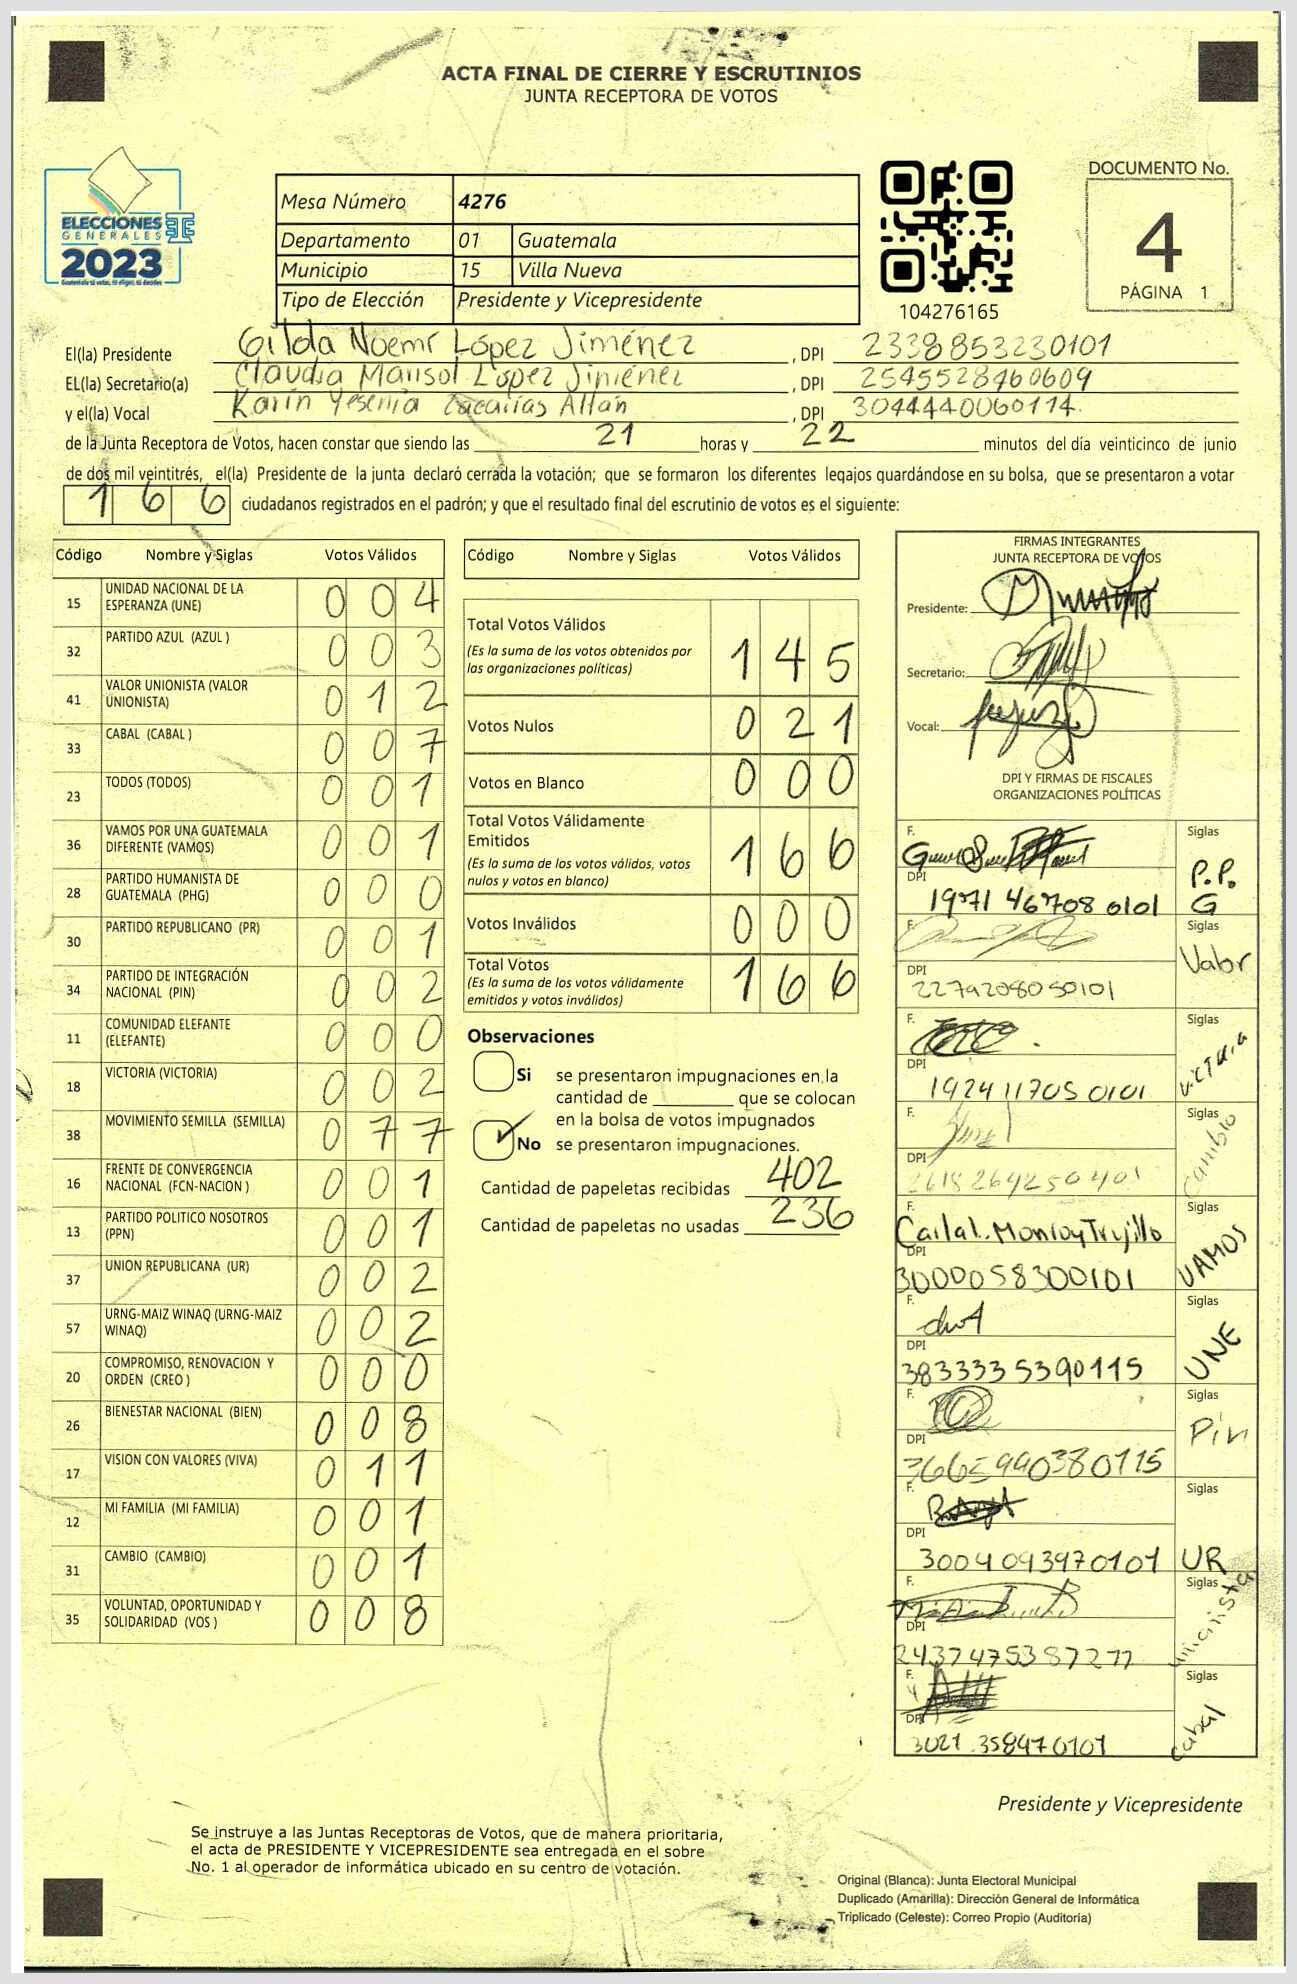 ACTA FINAL DE CIERRE Y ESCRUTINIOS
JUNTA RECEPTORA DE VOTOS
ELECCIONES
GENERALES
2023
Mesa Número 4276
Departamento 01 Guatemala
Municipio 15 Villa Nueva
Tipo de Elección Presidente y Vicepresidente
104276165
DOCUMENTO No.
4
PÁGINA 1
El(la) Presidente Gilda Noemí López Jiménez , DPI 2338853230101
EL(la) Secretario(a) Claudia Marisol López Jiménez , DPI 2545528460609
y el(la) Vocal Karin Yesenia Zacarías Allan , DPI 3044440060114
de la Junta Receptora de Votos, hacen constar que siendo las 21 horas y 22 minutos del día veinticinco de junio
de dos mil veintitrés, el(la) Presidente de la junta declaró cerrada la votación; que se formaron los diferentes legajos quardándose en su bolsa, que se presentaron a votar
166 ciudadanos registrados en el padrón; y que el resultado final del escrutinio de votos es el siguiente:
Código Nombre y Siglas Votos Válidos
15 UNIDAD NACIONAL DE LA ESPERANZA (UNE) 0 0 4
32 PARTIDO AZUL (AZUL ) 0 0 3
41 VALOR UNIONISTA (VALOR UNIONISTA) 0 1 2
33 CABAL (CABAL ) 0 0 7
23 TODOS (TODOS) 0 0 1
36 VAMOS POR UNA GUATEMALA DIFERENTE (VAMOS) 0 0 1
28 PARTIDO HUMANISTA DE GUATEMALA (PHG) 0 0 0
30 PARTIDO REPUBLICANO (PR) 0 0 1
34 PARTIDO DE INTEGRACIÓN NACIONAL (PIN) 0 0 2
11 COMUNIDAD ELEFANTE (ELEFANTE) 0 0 0
18 VICTORIA (VICTORIA) 0 0 2
38 MOVIMIENTO SEMILLA (SEMILLA) 0 7 7
16 FRENTE DE CONVERGENCIA NACIONAL (FCN-NACION ) 0 0 1
13 PARTIDO POLITICO NOSOTROS (PPN) 0 0 1
37 UNION REPUBLICANA (UR) 0 0 2
57 URNG-MAIZ WINAQ (URNG-MAIZ WINAQ) 0 0 2
20 COMPROMISO, RENOVACION Y ORDEN (CREO ) 0 0 0
26 BIENESTAR NACIONAL (BIEN) 0 0 8
17 VISION CON VALORES (VIVA) 0 1 1
12 MI FAMILIA (MI FAMILIA) 0 0 1
31 CAMBIO (CAMBIO) 0 0 1
35 VOLUNTAD, OPORTUNIDAD Y SOLIDARIDAD (VOS ) 0 0 8
Código Nombre y Siglas Votos Válidos
Total Votos Válidos 1 4 5
(Es la suma de los votos obtenidos por
las organizaciones políticas)
Votos Nulos 0 2 1
Votos en Blanco 0 0 0
Total Votos Válidamente
Emitidos 1 6 6
(Es la suma de los votos válidos, votos
nulos y votos en blanco)
Votos Inválidos 0 0 0
Total Votos 1 6 6
(Es la suma de los votos válidamente
emitidos y votos inválidos)
Observaciones
Si se presentaron impugnaciones en la
cantidad de ________ que se colocan
en la bolsa de votos impugnados
No se presentaron impugnaciones.
Cantidad de papeletas recibidas 402
Cantidad de papeletas no usadas 236
FIRMAS INTEGRANTES
JUNTA RECEPTORA DE VOTOS
Presidente:
Secretario:
Vocal:
DPI Y FIRMAS DE FISCALES
ORGANIZACIONES POLÍTICAS
F. Siglas P.P.G
DPI 1971 46708 0101
F. Siglas Valor
DPI 2279208050101
F. Siglas Victoria
DPI 1924117050101
F. Siglas Cambio
DPI 2618264250401
F. Carlal. Monroy Trujillo Siglas VAMOS
DPI 3000058300101
F. Siglas UNE
DPI 3833335390115
F. Siglas Pin
DPI 3665990380115
F. Siglas UR
DPI 3004093970101
F. Siglas unionista
DPI 2437475387277
F. Siglas cabal
DPI 3021 358970101
Presidente y Vicepresidente
Se instruye a las Juntas Receptoras de Votos, que de manera prioritaria,
el acta de PRESIDENTE Y VICEPRESIDENTE sea entregada en el sobre
No. 1 al operador de informática ubicado en su centro de votación.
Original (Blanca): Junta Electoral Municipal
Duplicado (Amarilla): Dirección General de Informática
Triplicado (Celeste): Correo Propio (Auditoría)